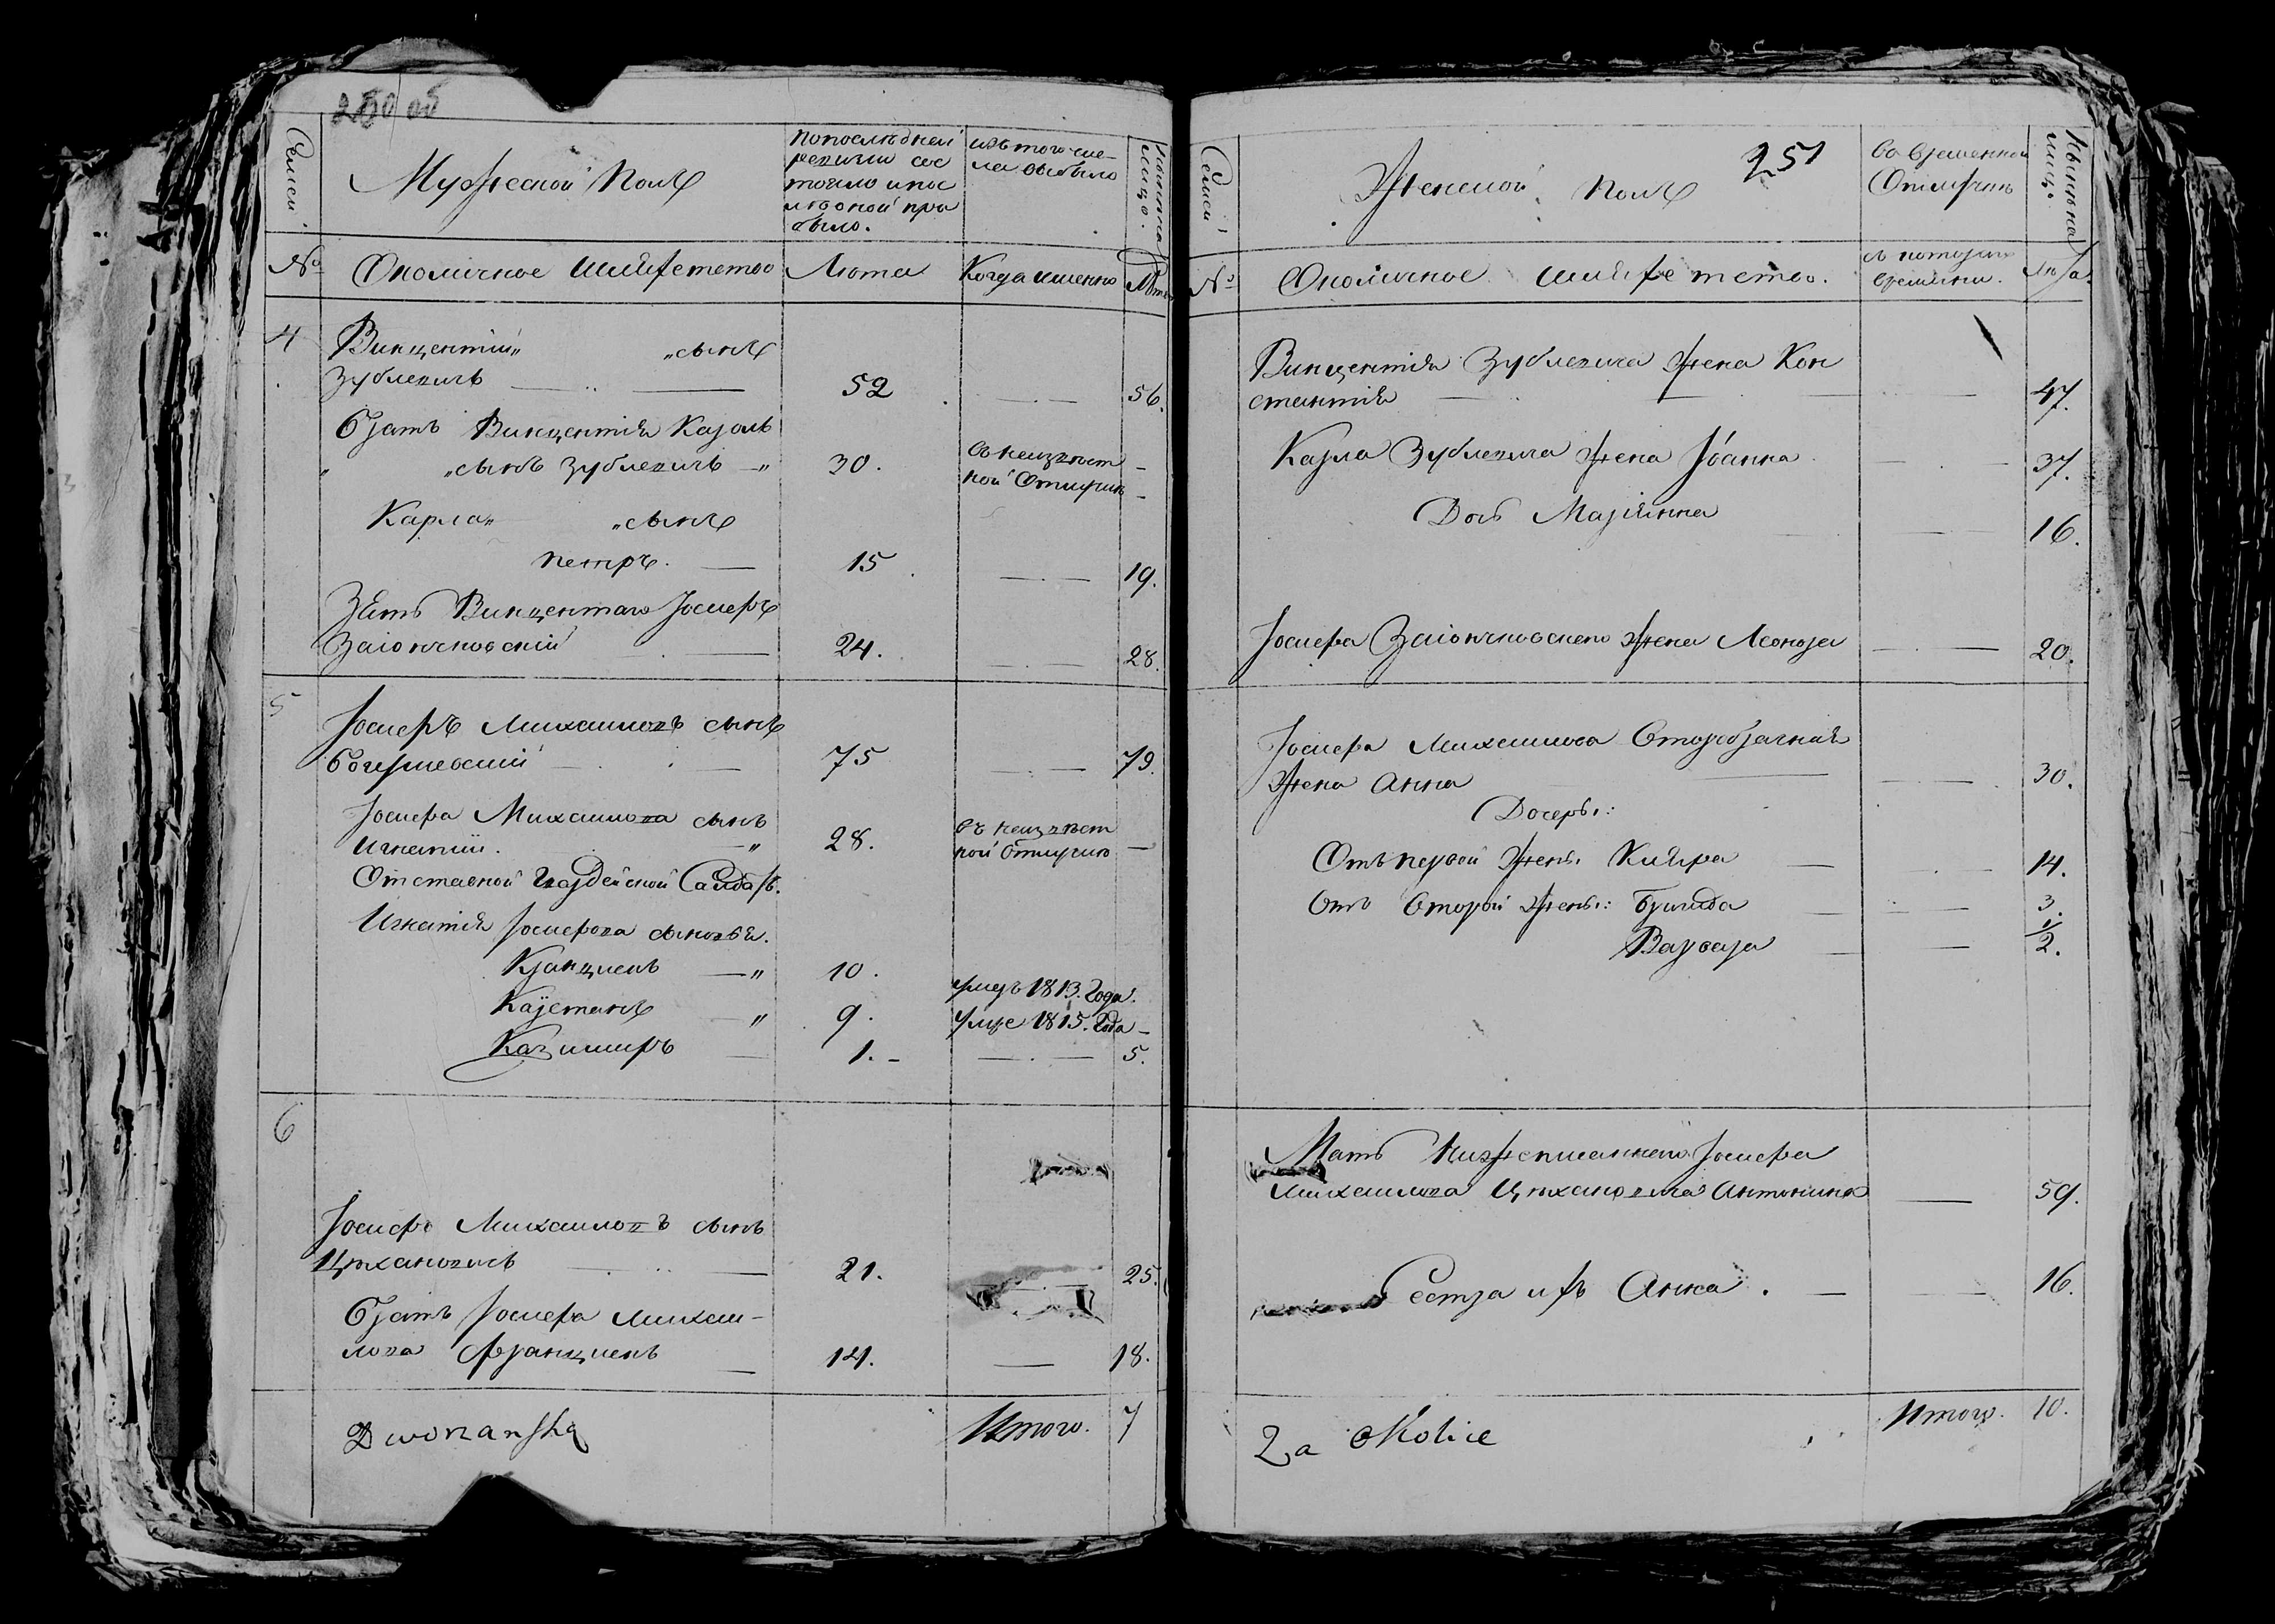 250 об
Семьи
Мужеской Полъ
по последней
ревизии сос
тояло и пос
ле оной при
было.
изъ того чис-
ла выбыло
Ныне на
лицо.
№
Околичное шляхетство
Лета
Когда именно
Лета
4
Винцентий „ „сынъ
Зублевичъ — 52 — 56.
Братъ Винцентія Кароль
„ „сынъ Зублевичъ —„ 30. въ неизвест —
ной Отлучке —
Карла „ „сынъ
Петръ. — 15 — 19.
Зять Винцентаго Іосифъ
Заіончковскій — 24. — 28.
5
Іосифъ Михаиловъ сынъ
— 75 — 79.
Іосифа Михаилова сынъ
Игнатій. „ 28. въ неизвест
ной отлучке —
Отставной Гвардейской Солдатъ.
Игнатія Іосифова сыновья.
Францискъ —„ 10. умеръ 1813. Года.
Каjетанъ —„ 9. умре 1815. Года —
Казимиръ — 1. — — 5.
6
Іосифъ Михаиловъ сынъ
Цѣхановичъ — 21. — 25.
Братъ Іосифа Михаи-
лова Францискъ — 14. — 18.
Dworzanſka Итого. 7
Семьи
Женской Полъ
251
Во временной
Отлучке
Ныне на
лицо.
№
Околичное шляхетство.
съ котораго
времени.
Лета.
Винцентія Зублевича жена Кон
стантія — 47.
Карла Зублевича жена Іоанна — 37.
Дочь Маріянна — 16.
Іосифа Заіончковскаго жена Леонора — 20.
Іосифа Михаилова Второбрачная
жена Анна — 30.
Дочеры:
Отъ первой жены Кляра — 14.
Отъ Второй жены: Бригида — 3.
Варвара — 1/2.
Мать Нижеписаннаго Іосифа
Михаилова Цѣхановича Антонина — 59.
Сестра ихъ Анна. — 16.
Za Okolice Итого. 10.